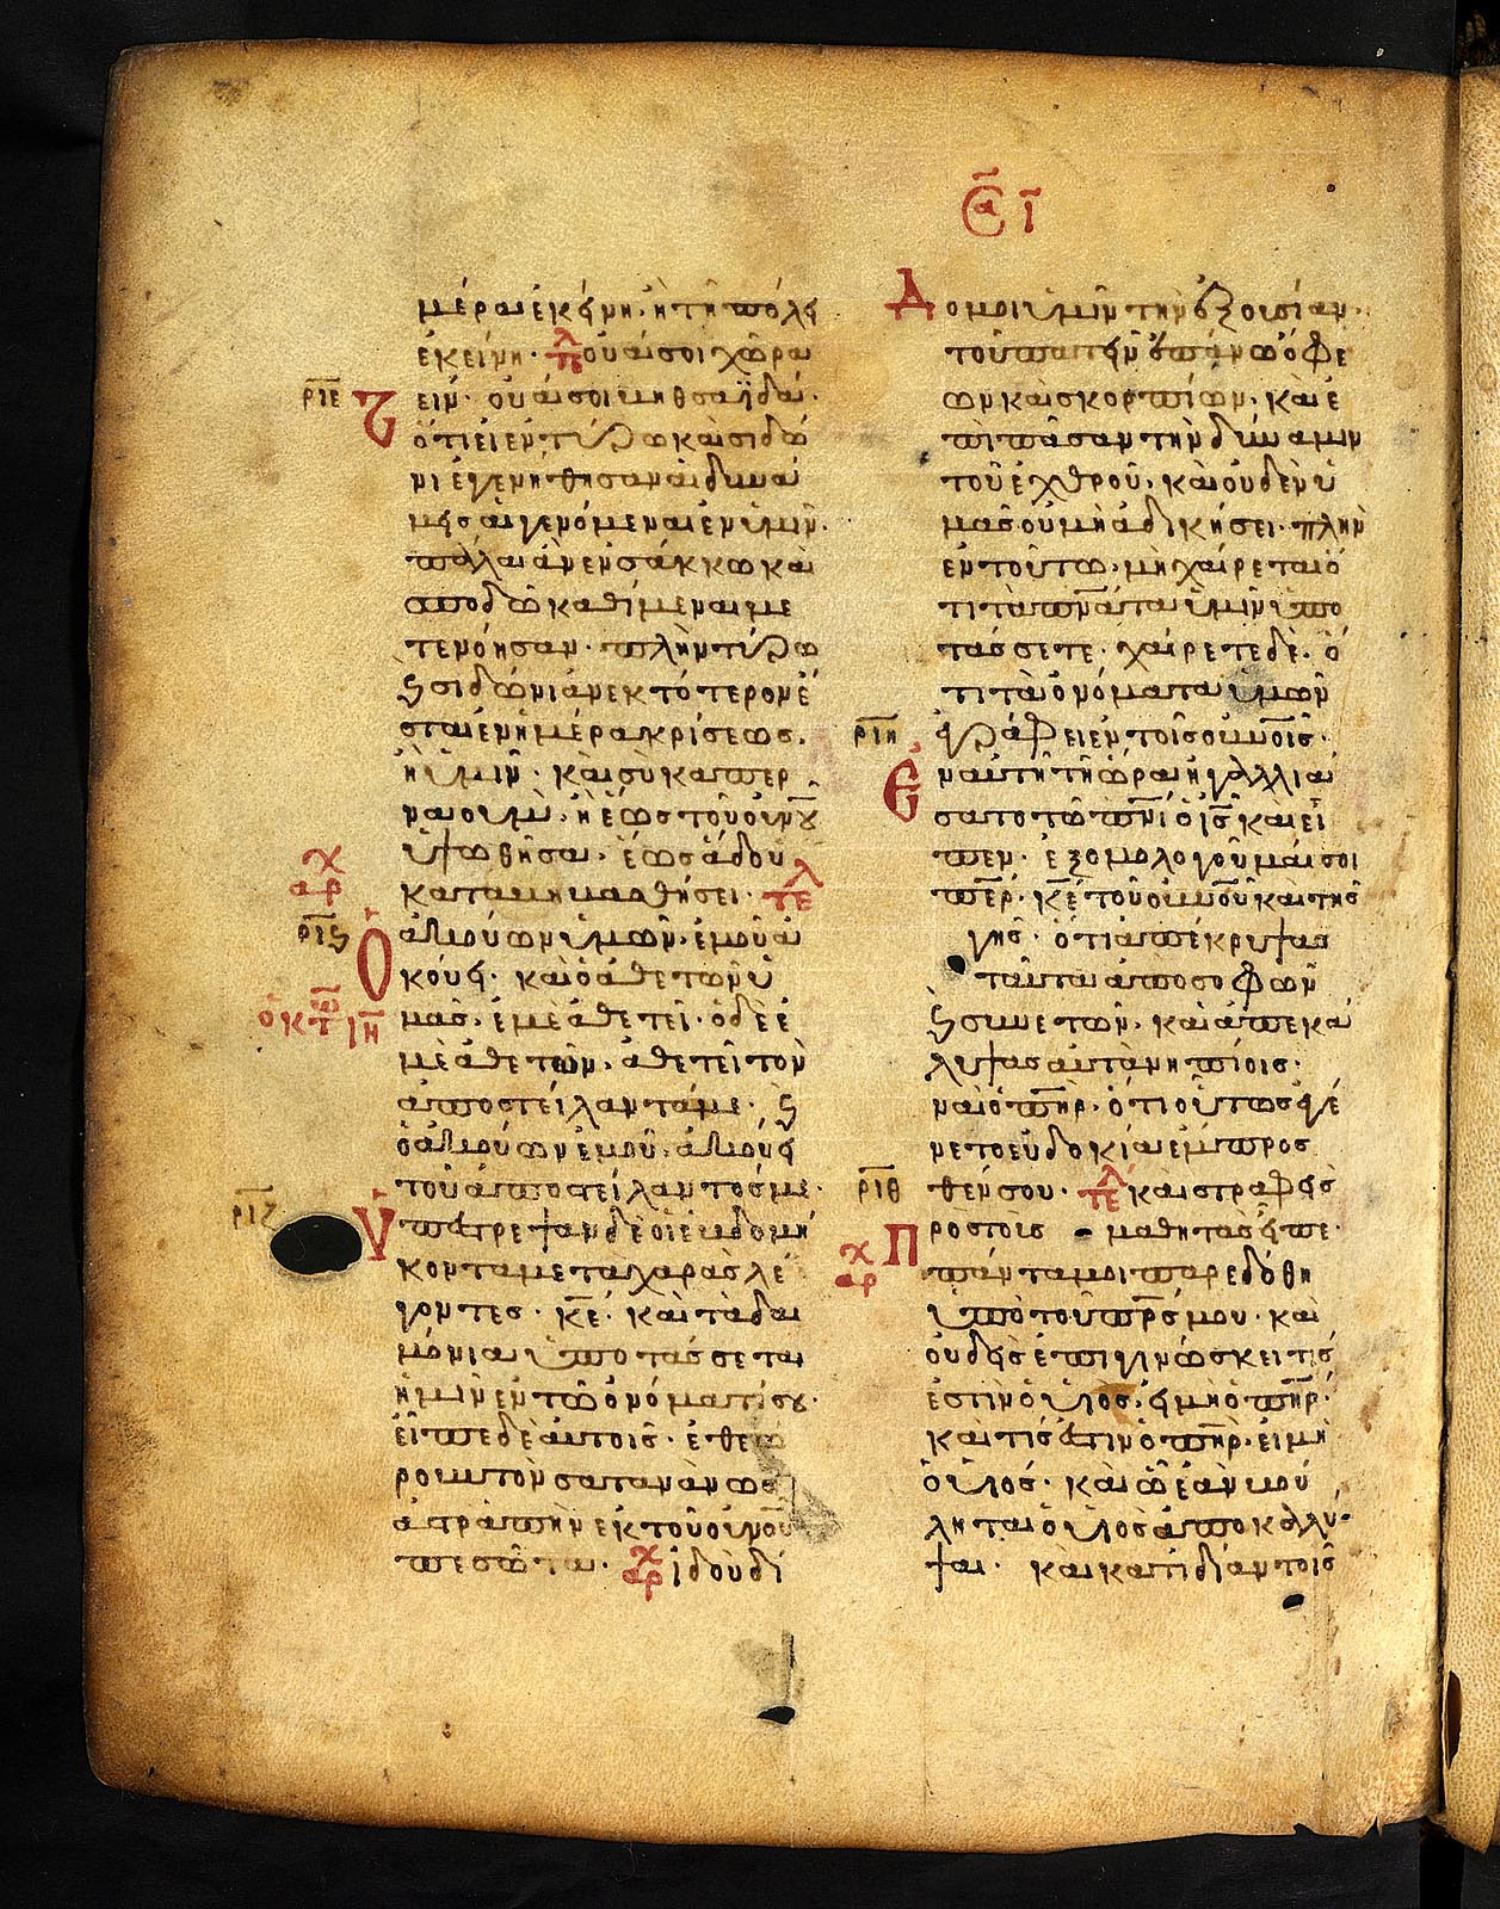 ε̅ ῑ
μέραι ἐκείνη· ἢ τῆ πόλει
ἐκείνη· τε^λ οὐαί σοι χωρα
ρ̅ι̅ε̅
ζείν· οὐαί σοι βηθσαϊδά·
ὅτι εἰ ἐν τύρω καὶ σιδῶ
νι ἐγενήθησαν αἱ δυνά
μεις αἱ γενόμεναι ἐν ὑμῖν·
πάλαι ἂν ἐν σάκκω καὶ
σποδῶ καθήμεναι με
τενόησαν· πλὴν τύρω
ϗ σιδῶνι ἀνεκτότερον ἔ
σται ἐν ἡμέρα κρίσεως·
ἢ ὑμῖν· καὶ σὺ καπερ
ναούμ· ἡ ἕως τοῦ οὐνοῦ
ὑψωθῆσαι· ἕως ἅδου
χ
αρ
καταβιβασθήσει· τε^λ
ρ̅ι̅ϛ̅
Ὁ ἀκούων ὑμῶν· ἐμοῦ ἀ
κούει· καὶ ὁ ἀθετῶν ὑ
ὀκτ ιη
μᾶς· ἐμὲ ἀθετεῖ· ὁ δὲ ἐ
μὲ ἀθετῶν· ἀθετεῖ τὸν
ἀποστείλαντά με· ϗ
ὁ ἀκούων ἐμοῦ· ἀκούει
τοῦ ἀποστείλαντός με·
ρ̅ι̅ζ̅
Ὑπέστρεψαν δὲ οἱ ἑβδομή
κοντα μετα χαρᾶς λέ
γοντες· κ̅ε̅· καὶ τὰ δαι
μόνια ὑποτάσσεται
ἡμῖν ἐν τῶ ὀνόματί σου·
εἶπε δὲ αὐτοῖς· ἐθεώ
ρουν τὸν σατανὰν ὡς
ἀστραπὴν ἐκ τοῦ οὐνοῦ
πεσῶντα· χ αρ ἰδοὺ δί
Δομοι ὑμῖν τὴν ἐξουσίαν·
τοῦ πατεῖν ἐπάνω ὄφε
ων καὶ σκορπίων· καὶ ἐ
πὶ πᾶσαν τὴν δύναμιν
τοῦ ἐχθροῦ· καὶ οὐδὲν ὑ
μᾶς οὐ μὴ ἀδικήσει· πλὴν
ἐν τούτω· μὴ χαίρεται ὅ
τι τὰ π̅ν̅ατα ὑμῖν ὑπο
τάσσετε· χαίρετε δὲ· ὅ
τι τὰ ὀνόματα ὑμῶν
ρ̅ι̅η̅
ἐγράφει ἐν τοῖς οὐνοῖς·
Ἐν αὐτῆ τῆ ὥρα ἠγαλλιά
σατο τῶ π̅ν̅ι ὁ ι̅ς̅ καὶ εἶ
πεν· ἐξομολογοῦμαί σοι
π̅ε̅ρ̅· κ̅ε̅ τοῦ οὐνοῦ καὶ τῆς
γῆς· ὅτι ἀπέκρυψας
ταῦτα ἀπο σοφῶν
ϗ συνετῶν· καὶ ἀπεκά
λυψας αὐτὰ νηπίοις·
ναὶ ὁ π̅η̅ρ̅· ὅτι οὕτως ἐγέ
νετο εὐδοκία ἔμπροσ
ρ̅ι̅θ̅
θέν σου· τε^λ καὶ στραφεὶς
προς τοὺς μαθητὰς εἶπε·
χ
αρ
Πάντα μοι παρεδόθη
ὑπὸ τοῦ π̅ρ̅ς̅ μου· καὶ
οὐδεὶς ἐπιγινώσκει τίς
ἐστιν ὁ υἱός· εἰ μὴ ὁ π̅η̅ρ̅·
καὶ τίς ἐστιν ὁ π̅η̅ρ̅· εἰ μὴ
ὁ υἱός· καὶ ᾧ ἐὰν βού
ληται ὁ υἱὸς ἀποκαλύ
ψαι· καὶ κατιδίαν τοῖς